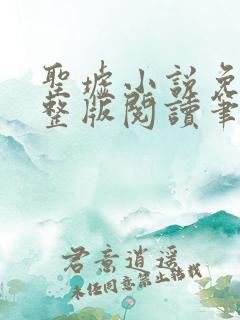 聖墟小說免
整版閱讀筆
君意逍遥
未经同意禁止转载